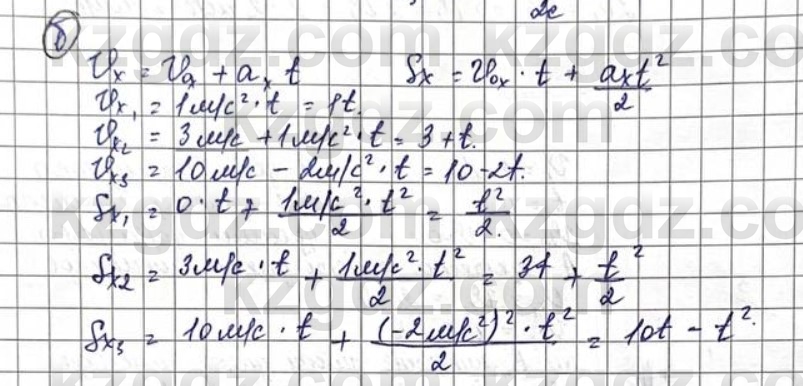 2c
б) 𝒱x = 𝒱ox + ax t    Sx = 𝒱ox · t + axt²/2
𝒱x₁ = 1м/с² · t = 1t.
𝒱x₂ = 3м/с + 1м/с² · t = 3 + t.
𝒱x₃ = 10м/с - 2м/с² · t = 10 - 2t.
Sx₁ = 0 · t + 1м/с² · t²/2 = t²/2.
Sx₂ = 3м/с · t + 1м/с² · t²/2 = 3t + t²/2
Sx₃ = 10м/с · t + (-2м/с²)² · t²/2 = 10t - t².
kzgdz.com